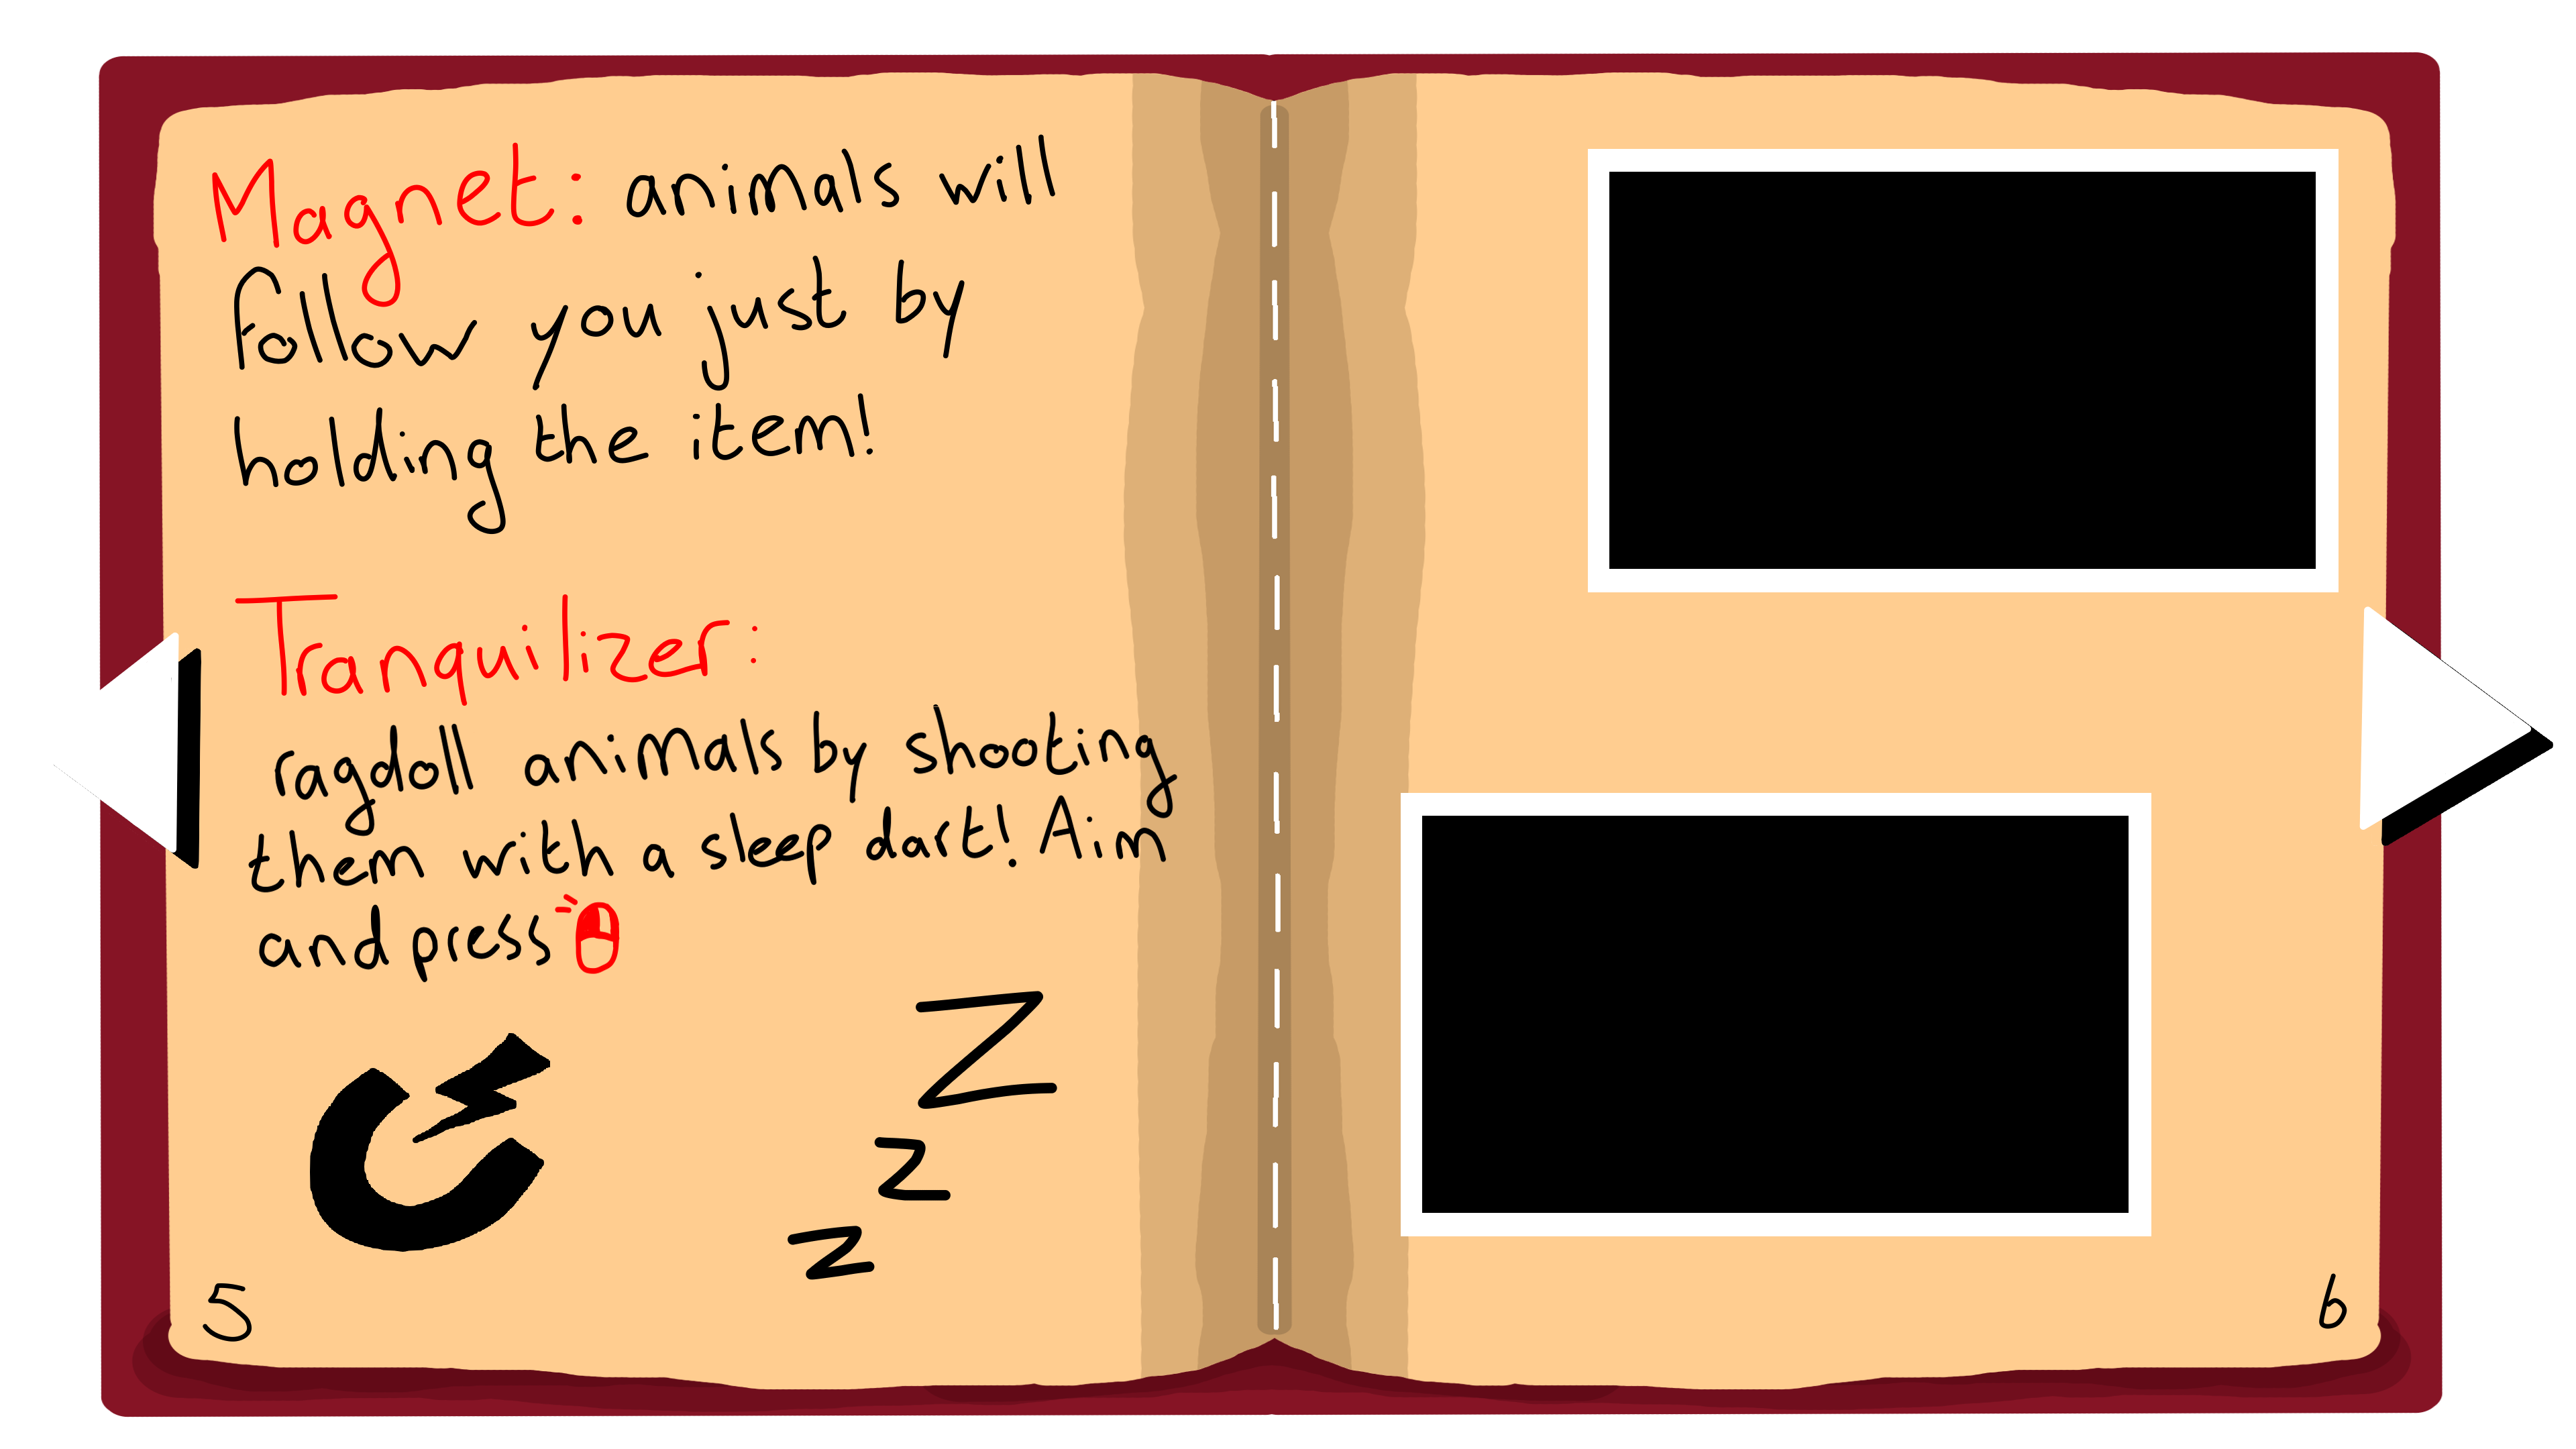 Magnet: animals will
follow you just by
holding the item!
Tranquilizer:
ragdoll animals by shooting
them with a sleep dart! Aim
and press
Z
z
z
5
6